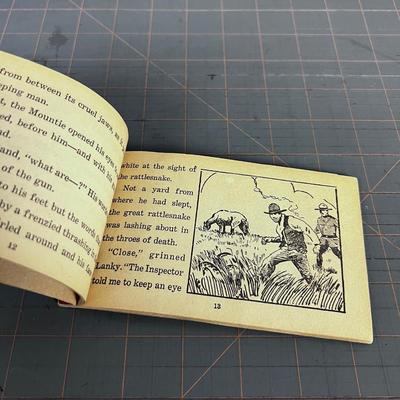 from between its cruel jaws, as a
ping man.
t, the Mountie opened his eyes
ed, before him—and with his
d.
and, "what are—?" His wor
of the gun.
to his feet but the words w
by a frenzied thrashing in
rled around and his fac
12
white at the sight of
the rattlesnake.
Not a yard from
where he had slept,
the great rattlesnake
was lashing about in
the throes of death.
"Close," grinned
Lanky. "The Inspector
told me to keep an eye
13